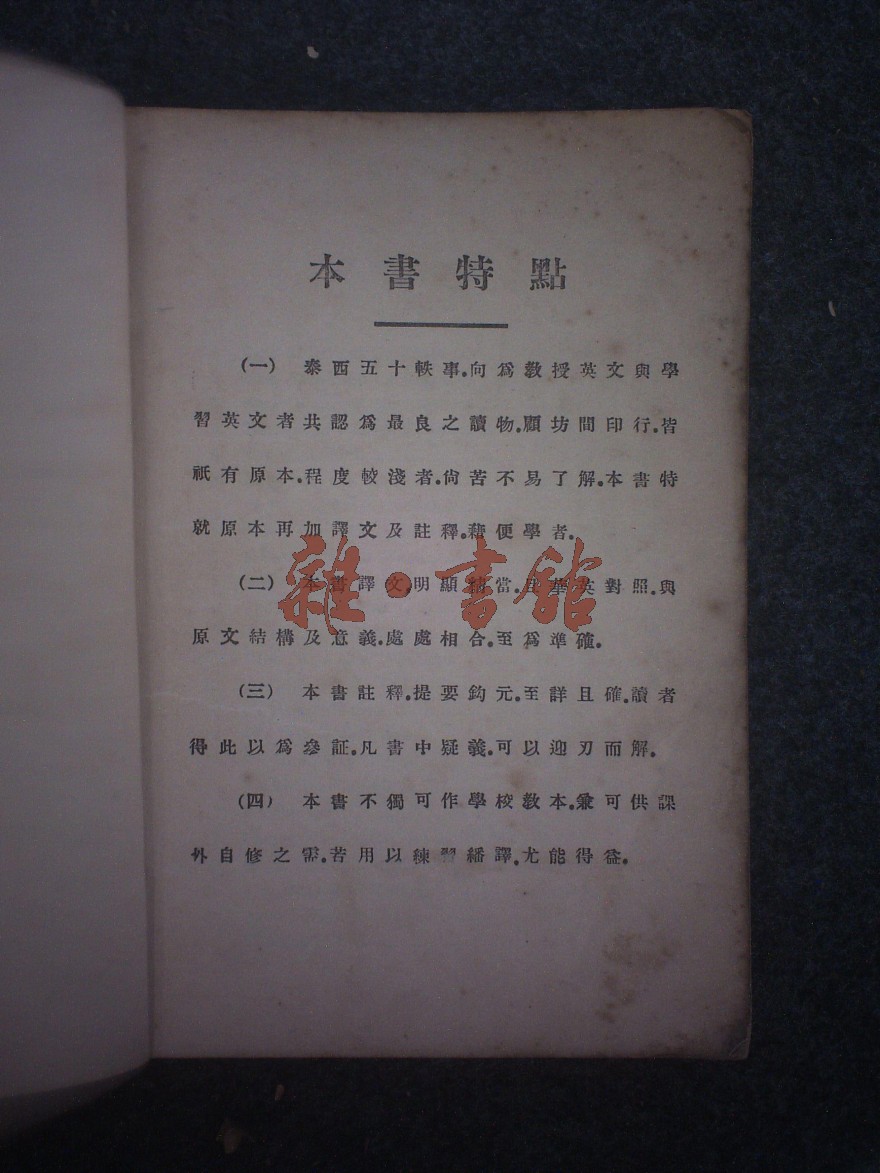 本書特點
(一) 泰西五十軼事.向爲教授英文與學
習英文者共認爲最良之讀物.顧坊間印行.皆
祇有原本.程度較淺者.尙苦不易了解.本書特
就原本再加譯文及註釋.藉便學者.
(二) 本書譯文.明顯 當.且華英對照.與
原文結構及意義.處處相合.至爲準確.
(三) 本書註釋.提要鈎元.至詳且確.讀者
得此以爲參証.凡書中疑義.可以迎刃而解.
(四) 本書不獨可作學校教本.兼可供課
外自修之需.若用以練習繙譯.尤能得益.
雜·書館